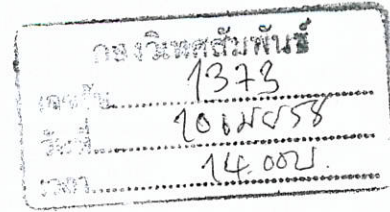 กองวิเทศสัมพันธ์
เลขรับ 1373
วันที่ 10 เมย 58
เวลา 14.00น.